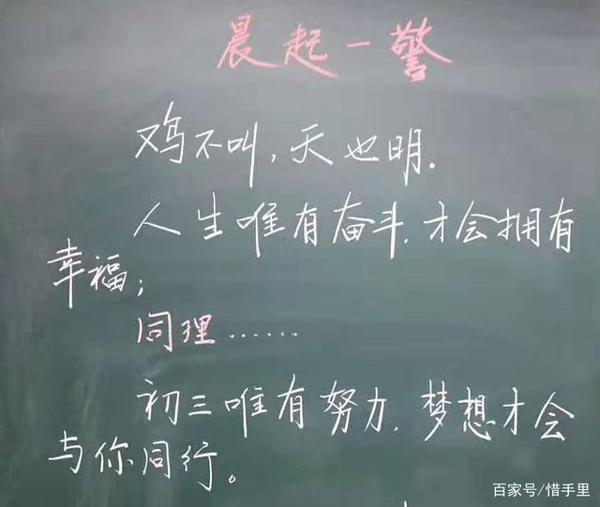 晨起一警
鸡不叫,天也明.
人生唯有奋斗.才会拥有
幸福;
同理……
初三唯有努力.梦想才会
与你同行。
百家号/惜手里